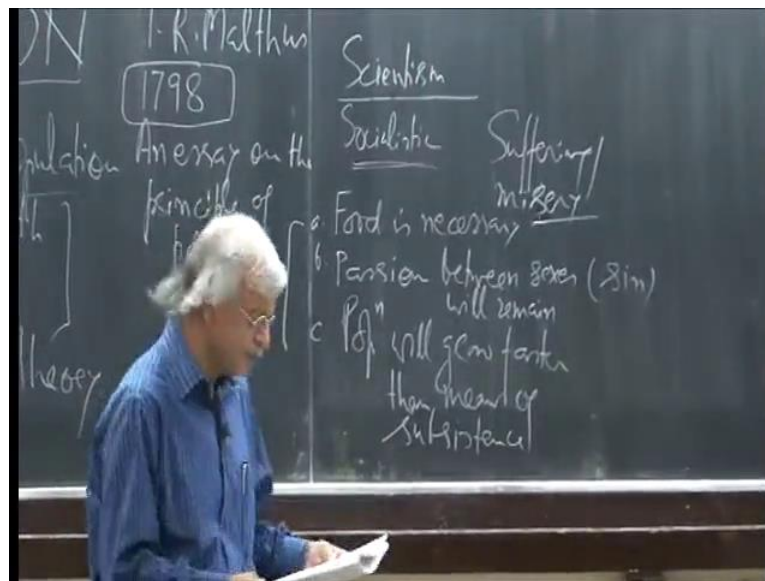 ON
T.R. Malthus
1798
pulation
An essay on the
principle of
Theory
Scientism
Socialistic
Suffering/
misery
a. Food is necessary
b. Passion between sexes (sin)
will remain
c Popn will grow faster
than means of
subsistence